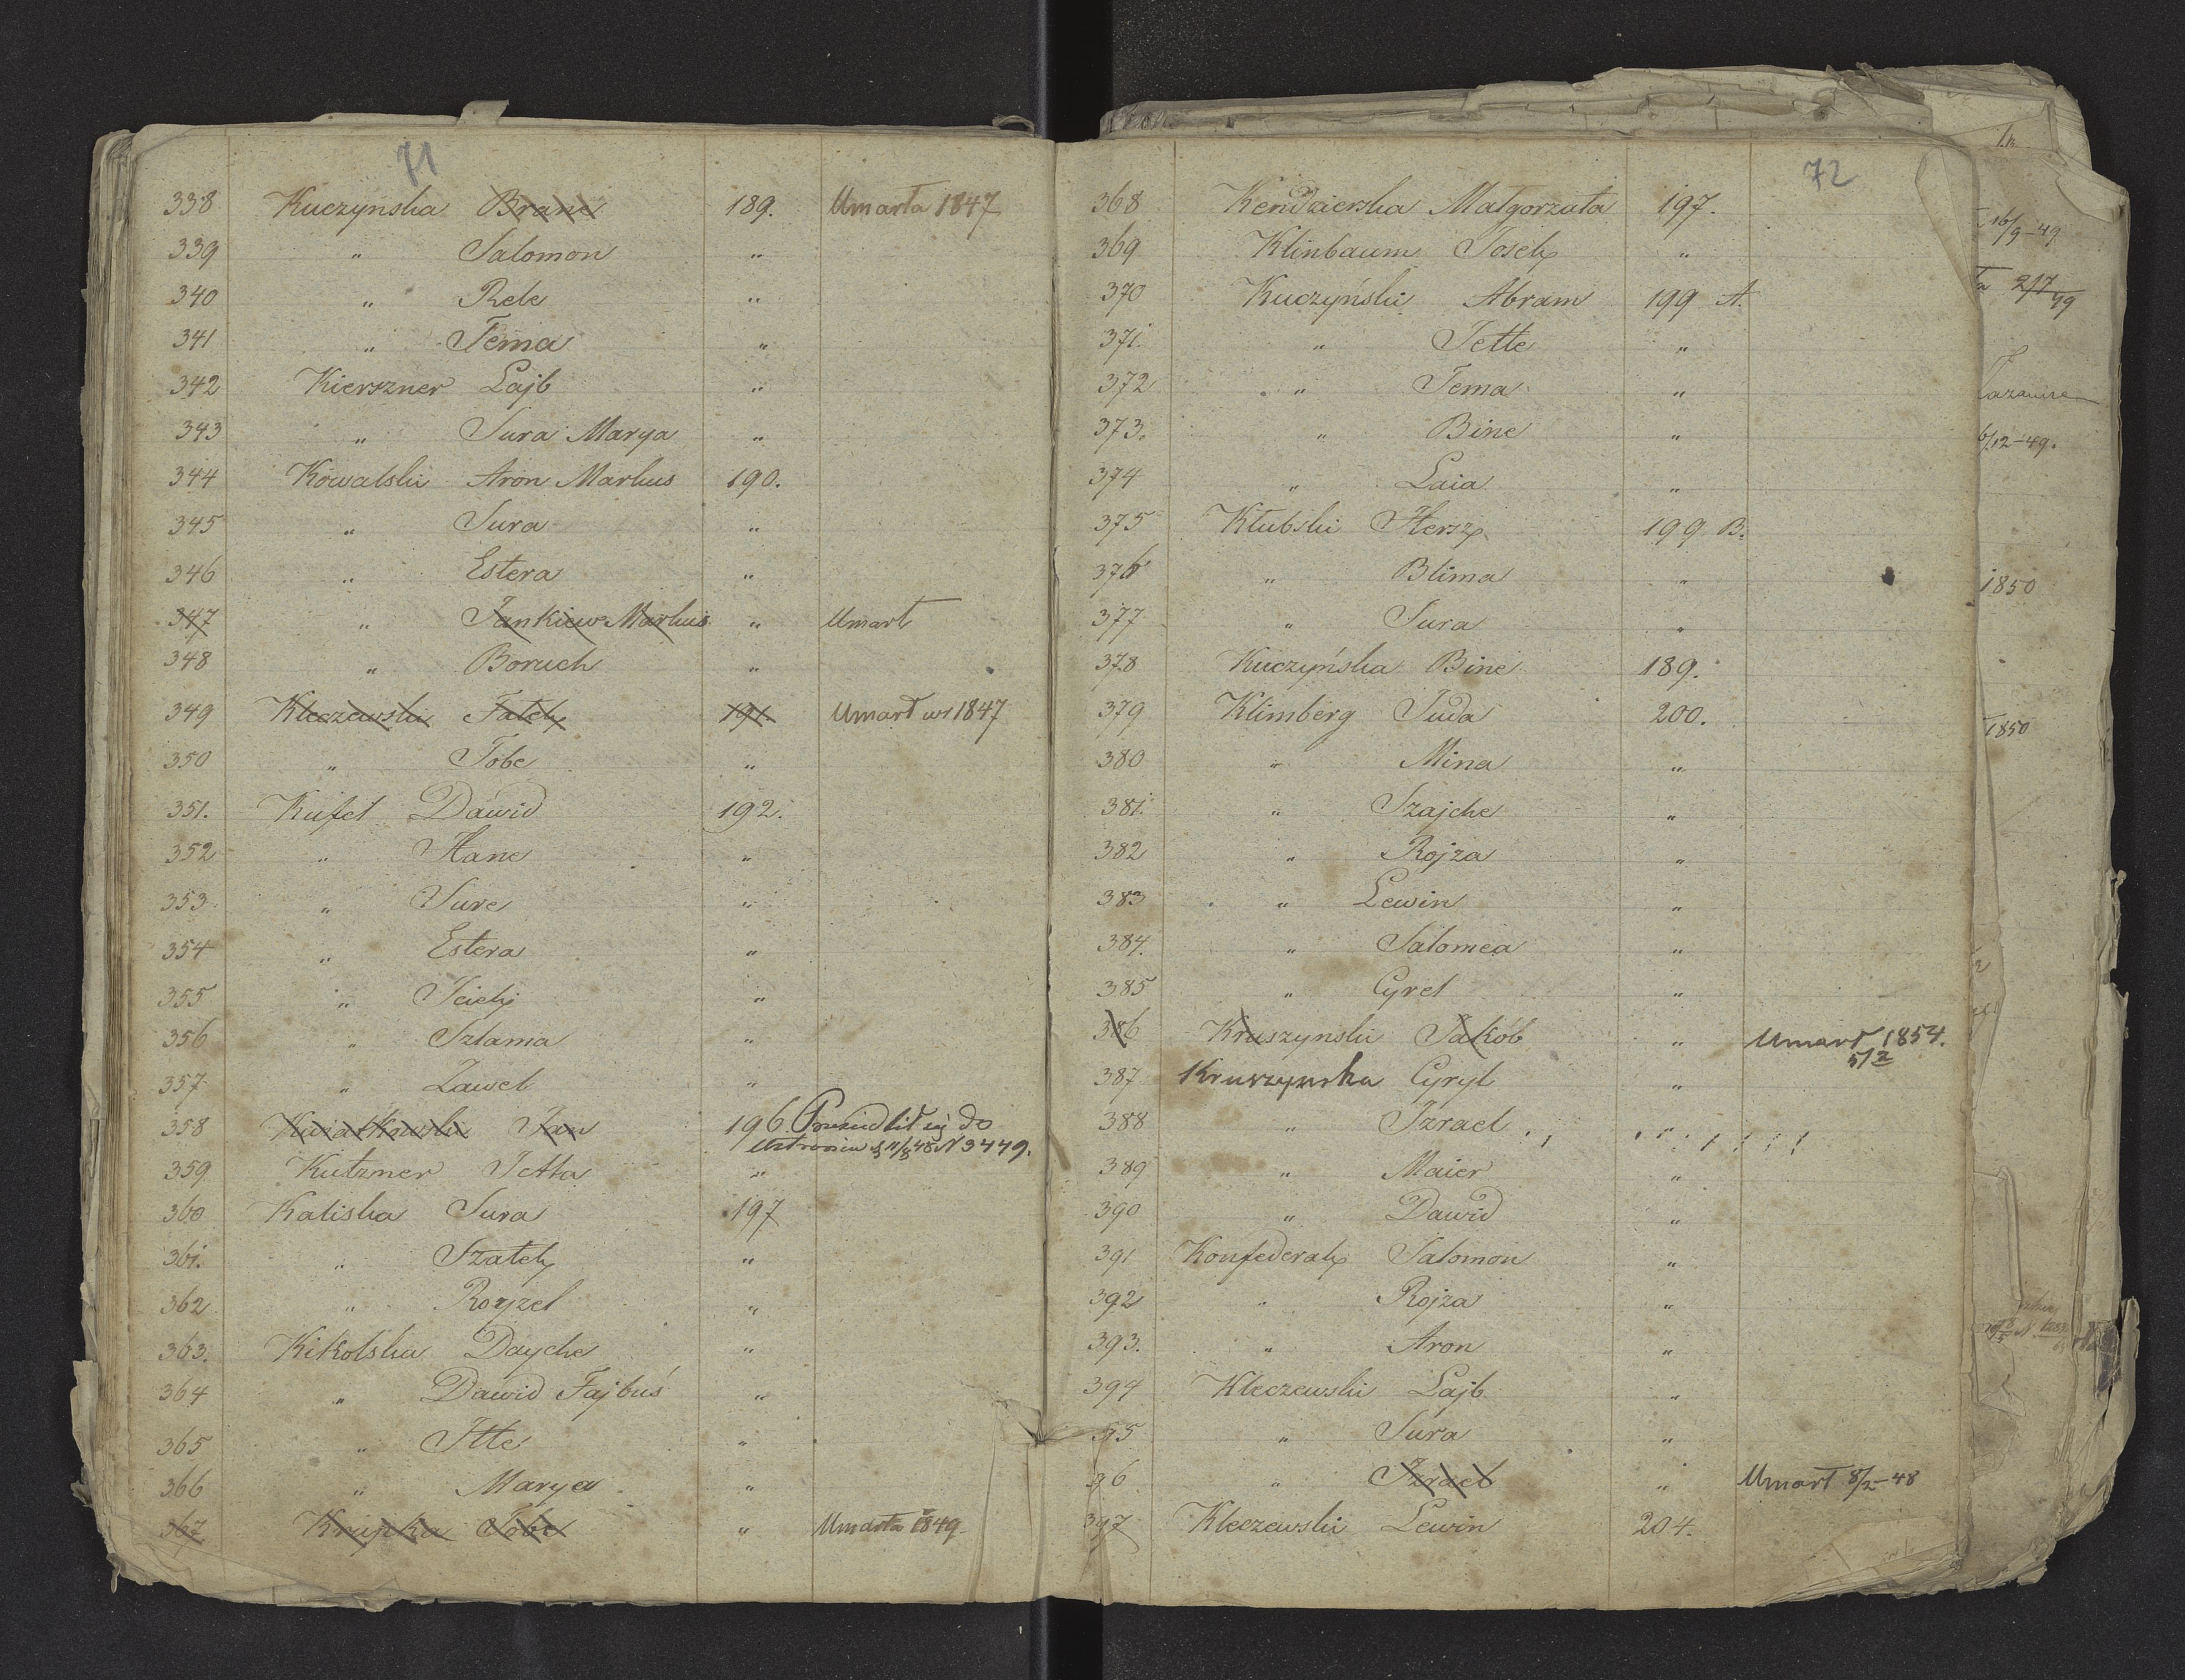 71
338 Kuczynska Brane 189. Umarła 1847
339 " Salomon "
340 " Rele "
341 " Tema "
342 Kierszner Lajb "
343 " Sura Marya "
344 Kowalski Aron Markus 190.
345 " Sura "
346 " Estera "
347 " Jankiew Markus " Umarł
348 " Boruch "
349 Kleczewski Falek 191. Umarł w 1847
350 " Tobe "
351. Kufel Dawid 192.
352 " Hane "
353 " Sure "
354 " Estera "
355 " Icick "
356 " Szlama "
357 " Zawel "
358 Kwiatkowski Jan 196 Przesiedlił się do
3449.
359 Kutzner Jetta "
360 Kaliska Sura 197
361. " Szalek "
362 " Royzel "
363. Kikolska Dayche "
364 " Dawid Fajbuś "
365 " Itte "
366 " Marya "
367 Krupka Tobe " Umarła 1849
72
368 Kendzierska Małgorzata 197.
369 Klinbaum Josek "
370 Kuczyński Abram 199 A.
371. " Jette "
372 " Tema "
373. " Bine "
374 " Laia "
375 Kłubski Hersz 199 B.
376 " Blima "
377 " Sura "
378 Kuczyńska Bine 189.
379 Klimberg Juda 200.
380 " Mina "
381. " Szajche "
382 " Rojza "
383 " Lewin "
384. " Salomea "
385 " Cyrel "
386 Kruszynski Jakób " Umarł 1854.
5/2
387 Kruszynska Cyryl "
388 " Izrael "
389 " Maier "
390 " Dawid "
391 Konfederak Salomon "
392 " Rojza "
393. " Aron "
394 Kleczewski Lajb "
95 " Sura "
96 " Izrael " Umarł 8/2-48
397 Kleczewski Lewin 204.
16/9-49
2/7 49
6/12-49.
1850
1850